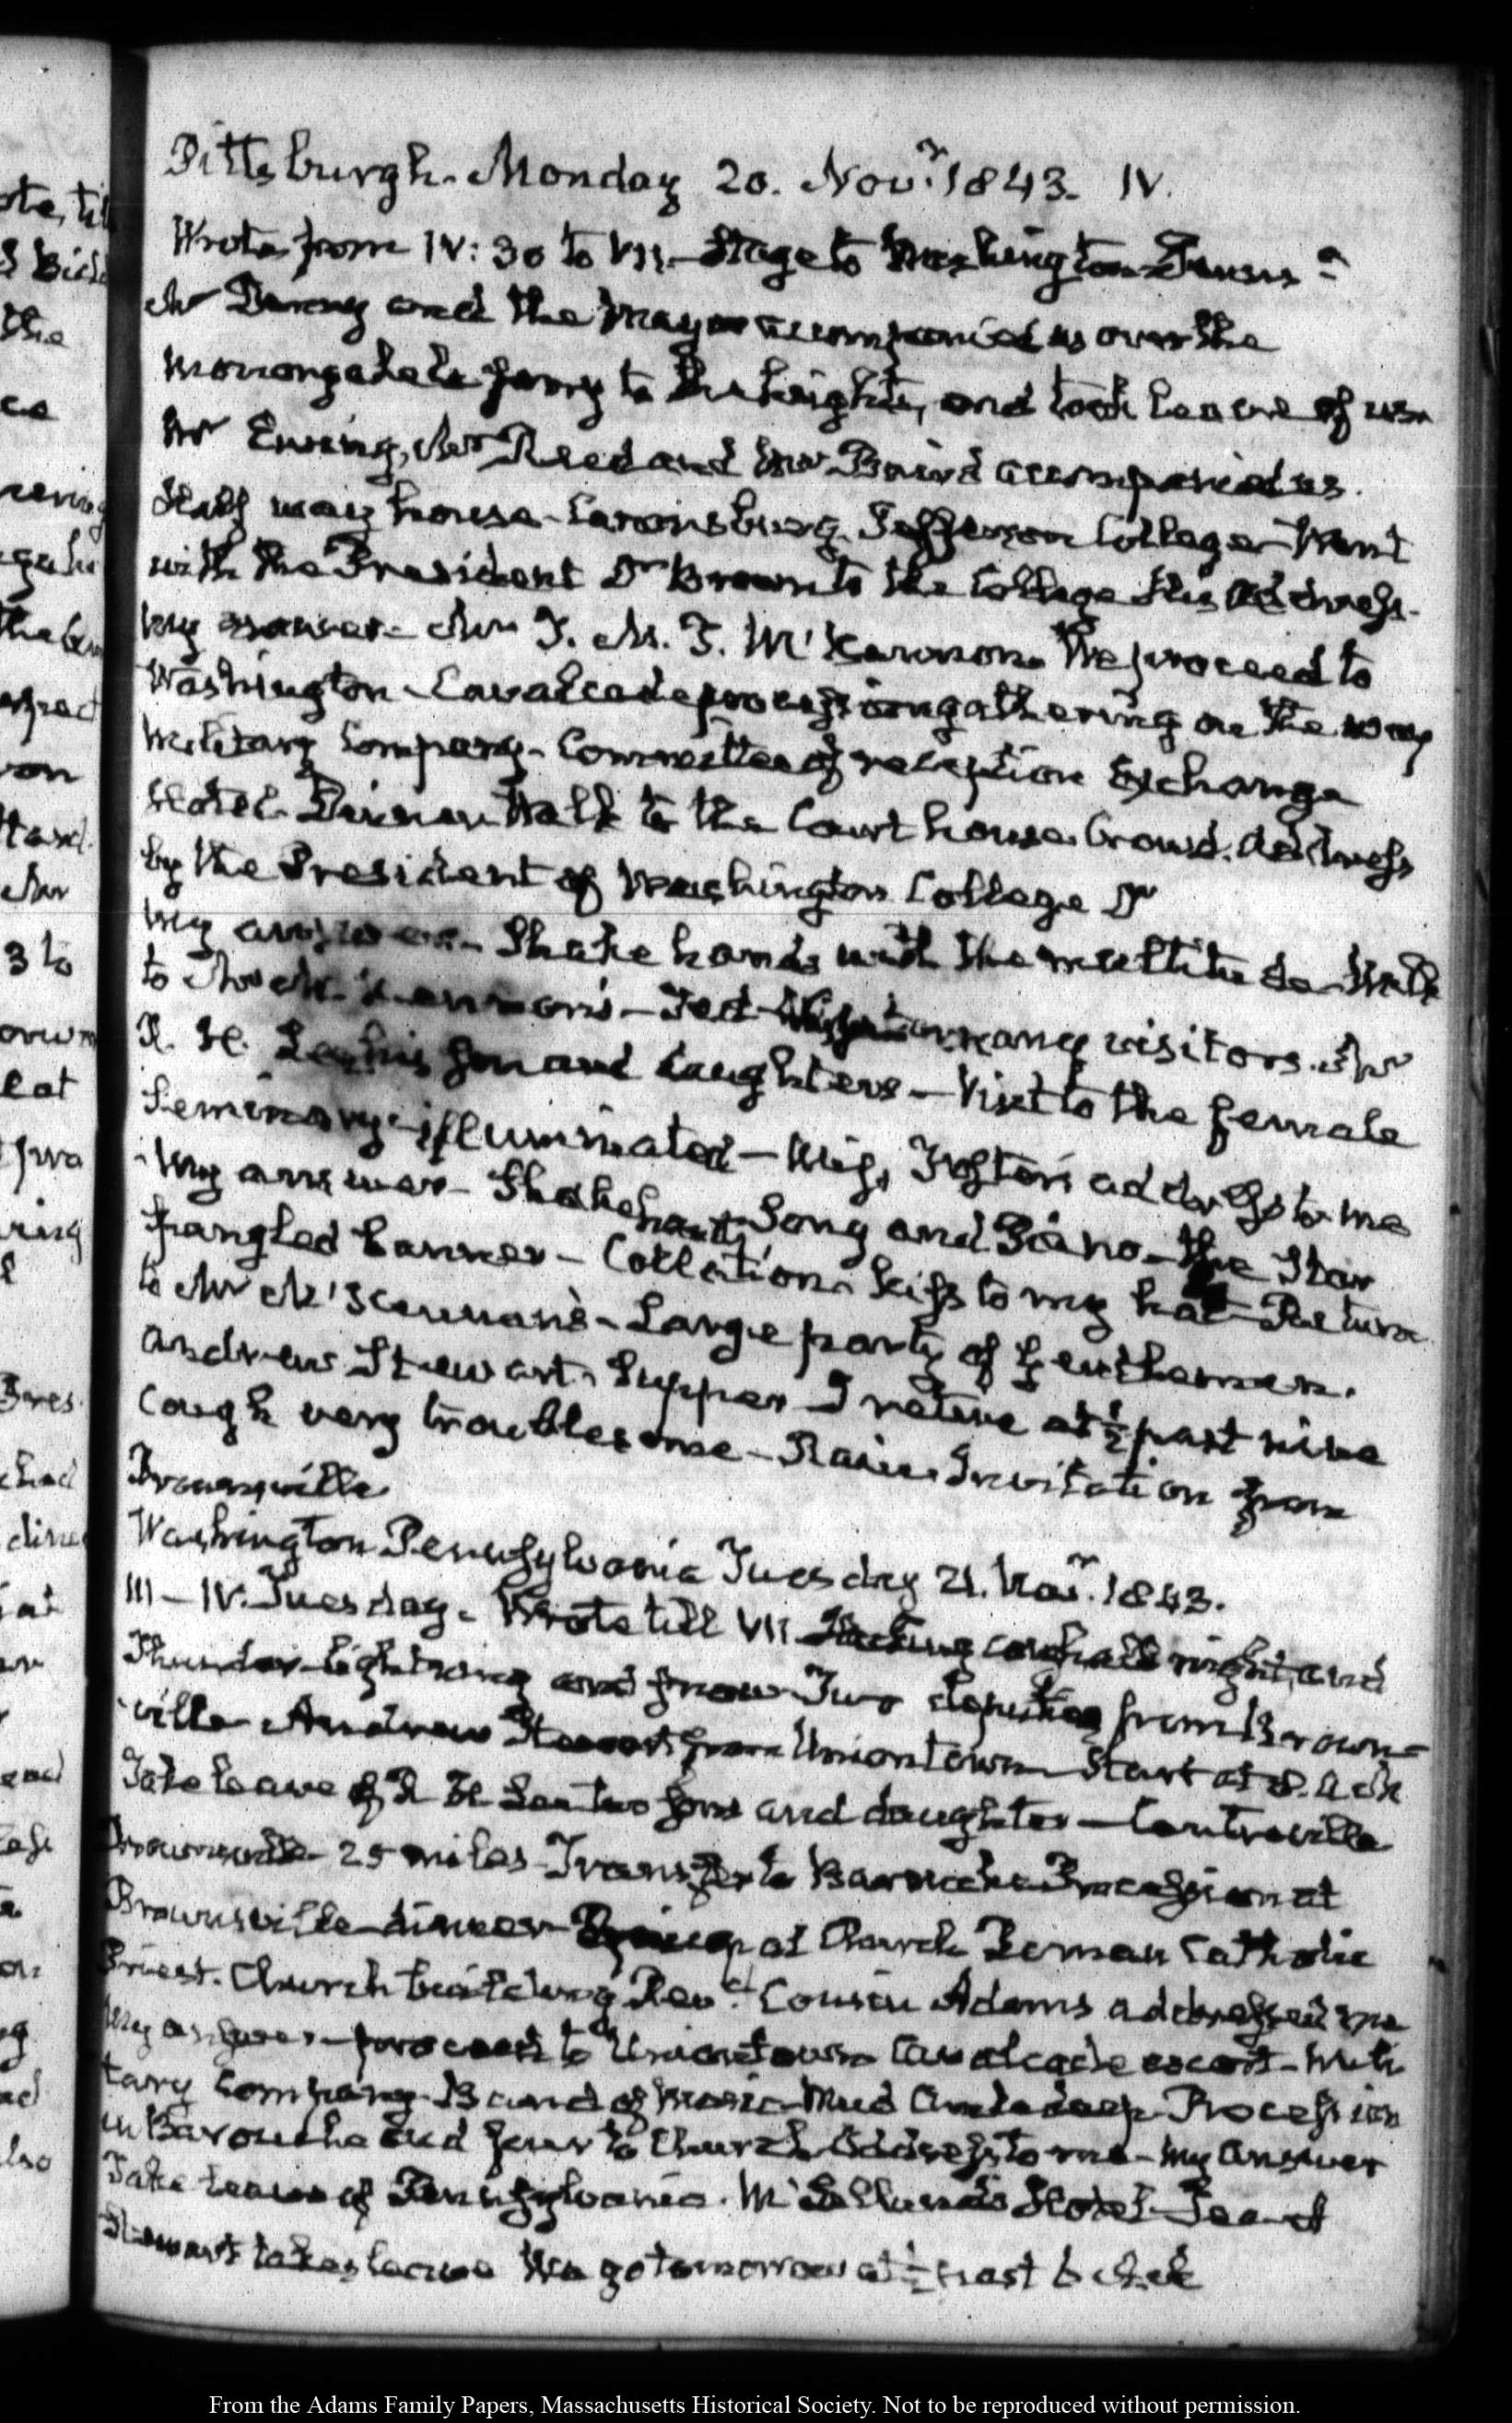 Pittsburgh. Monday 20. Novr. 1843. IV.
Wrote from IV:30 to VII. Stage to Washington
Mr Denny and the Mayor accompanied us over the
Monongahela ferry to the heights, and took leave of us.
Mr Ewing, Mr Reed and Mr Baird accompanied us.
Half way house. Canonsburg. Jefferson College. Went
with the President Dr Brown to the College his address.
My answer. Mr T. M. T. M'Kennon. We proceed to
Washington. Cavalcade procession gathering on the way
Military Company. Committee of reception Exchange
Hotel. Dinner. Walk to the Court house. Crowd. Address
by the President of Washington College Dr
My answer. Shake hands with the multitude. Walk
to Mr M'Kennon's. Tea many visitors. Mr
R. H. Lee, his son and daughters. Visit to the female
Seminary. illuminated. Miss Foster's address to me
My answer. Shake hands. Song and Piano. the Star
Spangled banner. Collation. Kiss to my hat. Return
to Mr M'Kennan's. Large party of Gentlemen.
Andrew Stewart. Supper. I retire at ½ past nine
Cough very troublesome. Rain. Invitation from
Brownsville.
Washington Pennsylvania Tuesday 21. Novr. 1843.
III – IV. Tuesday. Wrote till VII. Hacking cough all night, and
Thunder lightning and snow. Two deputies from Browns-
ville Andrew Stewart from Uniontown. Start at 8. A ck
Take leave of R H Lee two sons and daughter. Centreville
Brownsville 25 miles. Transfer to Barouche. Procession at
Brownsville. dinner. at Church Roman Catholic
Priest. Church building. Revd. Cousin Adams addressed me
My answer. proceed to Uniontown Cavalcade escort. Mili
tary Company. Band of Music. Mud Ankle deep. Procession
in Barouche and four to Church. Address to me. My answer
Take leave of Pennsylvania. M'Clelland's Hotel. Tea
Stewart takes leave We go tomorrow at ½ past 6
From the Adams Family Papers, Massachusetts Historical Society. Not to be reproduced without permission.